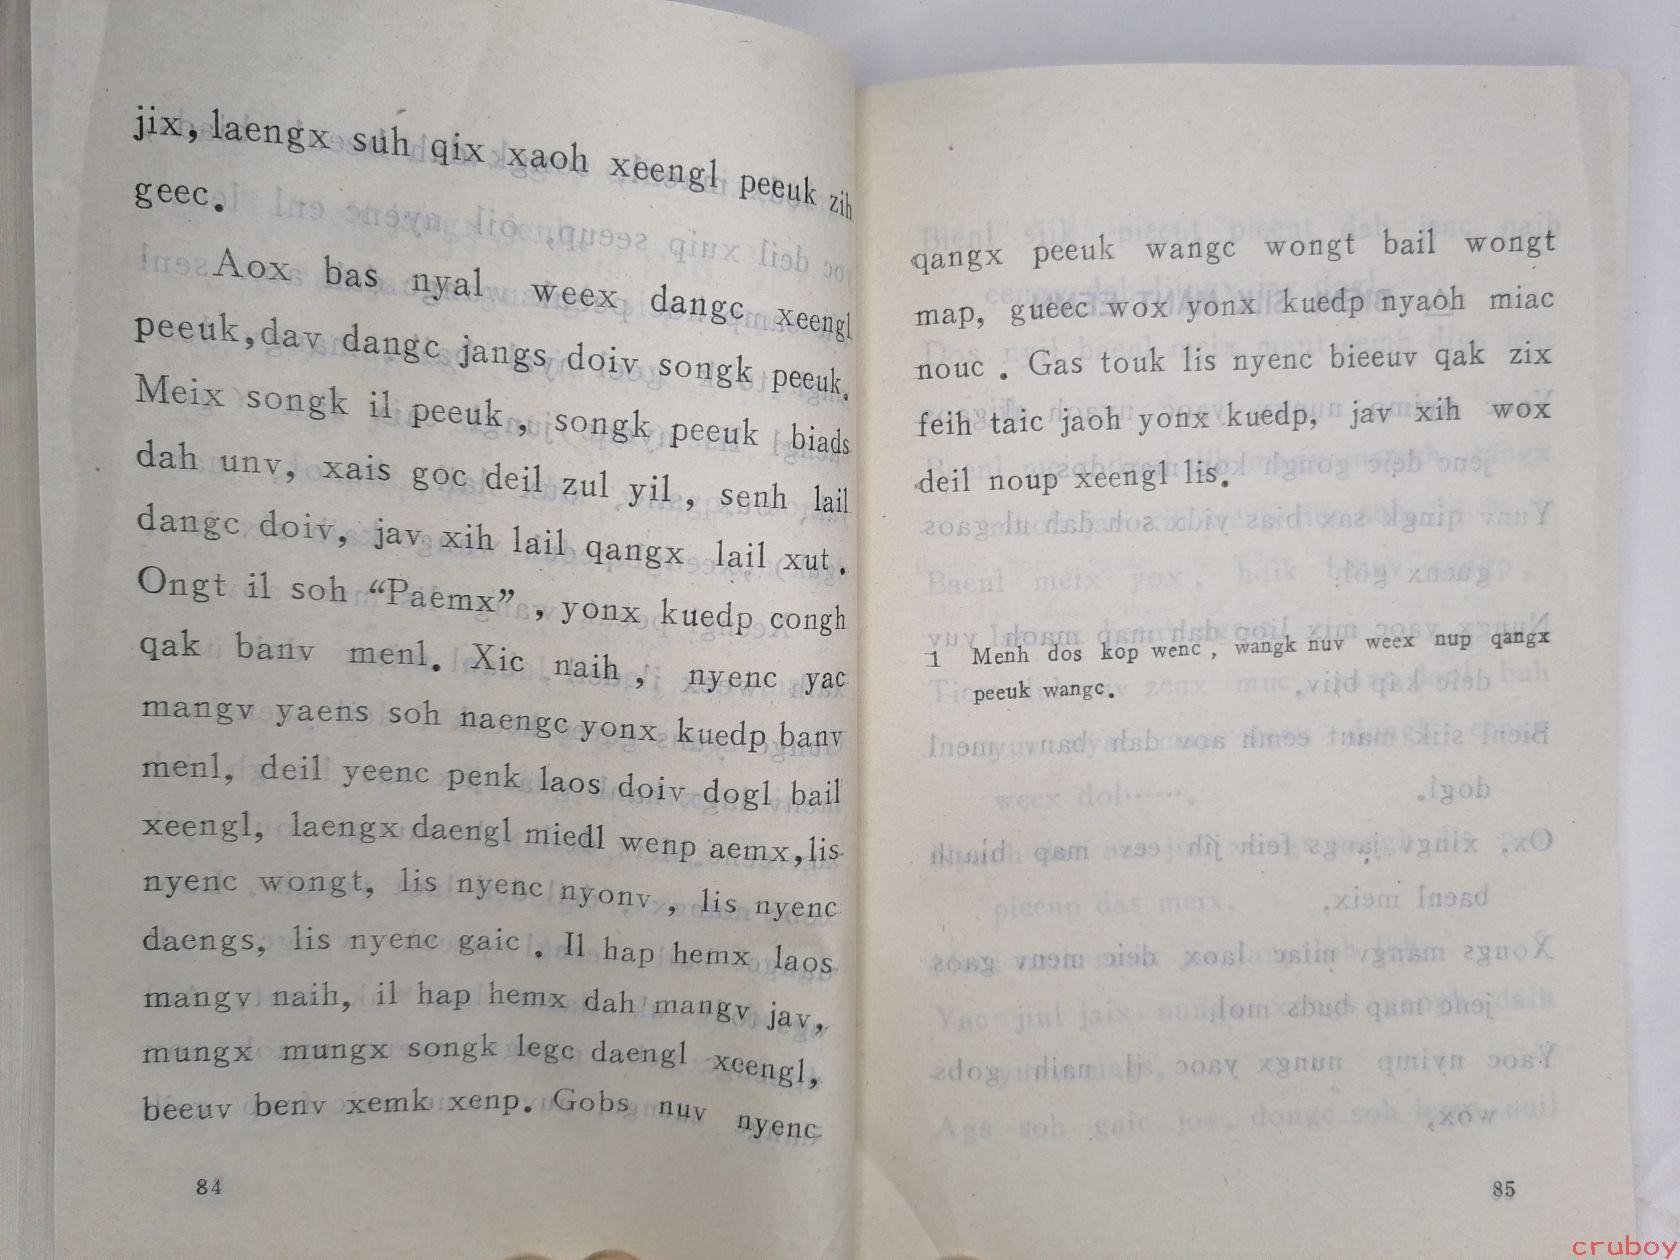 jix, laengx suh qix xaoh xeengl peeuk zih
geec.
Aox bas nyal weex dangc xeengl
peeuk, dav dangc jangs doiv songk peeuk.
Meix songk il peeuk, songk peeuk biads
dah unv, xais goc deil zul yil, senh lail
dangc doiv, jav xih lail qangx lail xut.
Ongt il soh “Paemx”, yonx kuedp congh
qak banv menl. Xic naih, nyenc yac
mangv yaens soh naengc yonx kuedp banv
menl, deil yeenc penk laos doiv dogl bail
xeengl, laengx daengl miedl wenp aemx, lis
nyenc wongt, lis nyenc nyonv, lis nyenc
daengs, lis nyenc gaic. Il hap hemx laos
mangv naih, il hap hemx dah mangv jav,
mungx mungx songk legc daengl xeengl,
beeuv benv xemk xenp. Gobs nuv nyenc
84
qangx peeuk wangc wongt bail wongt
map, gueec wox yonx kuedp nyaoh miac
nouc. Gas touk lis nyenc bieeuv qak zix
feih taic jaoh yonx kuedp, jav xih wox
deil noup xeengl lis.
1 Menh dos kop wenc, wangk nuv weex nup qangx
peeuk wangc.
85
cruboy